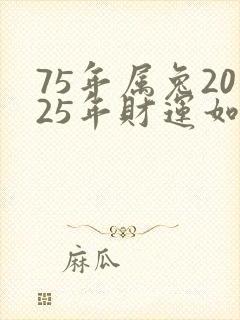 75年属兔20
25年財運如
麻瓜